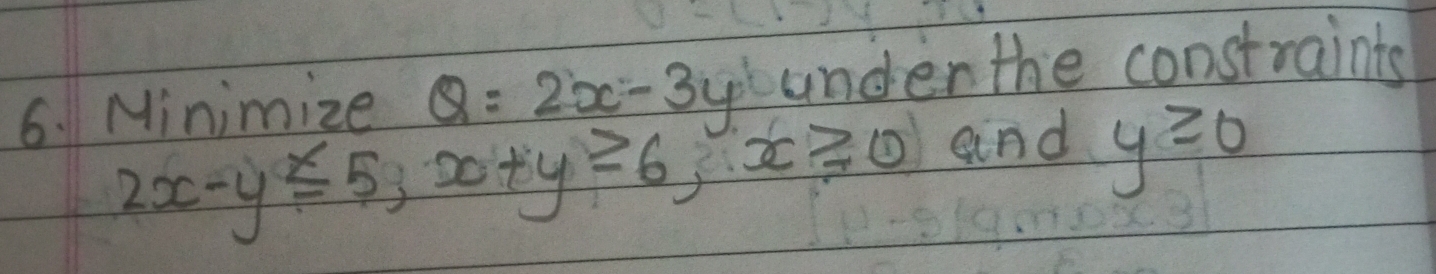 6. Minimize Q = 2x - 3y under the constraints
2x - y ≤ 5, x + y ≥ 6, x ≥ 0 and y ≥ 0